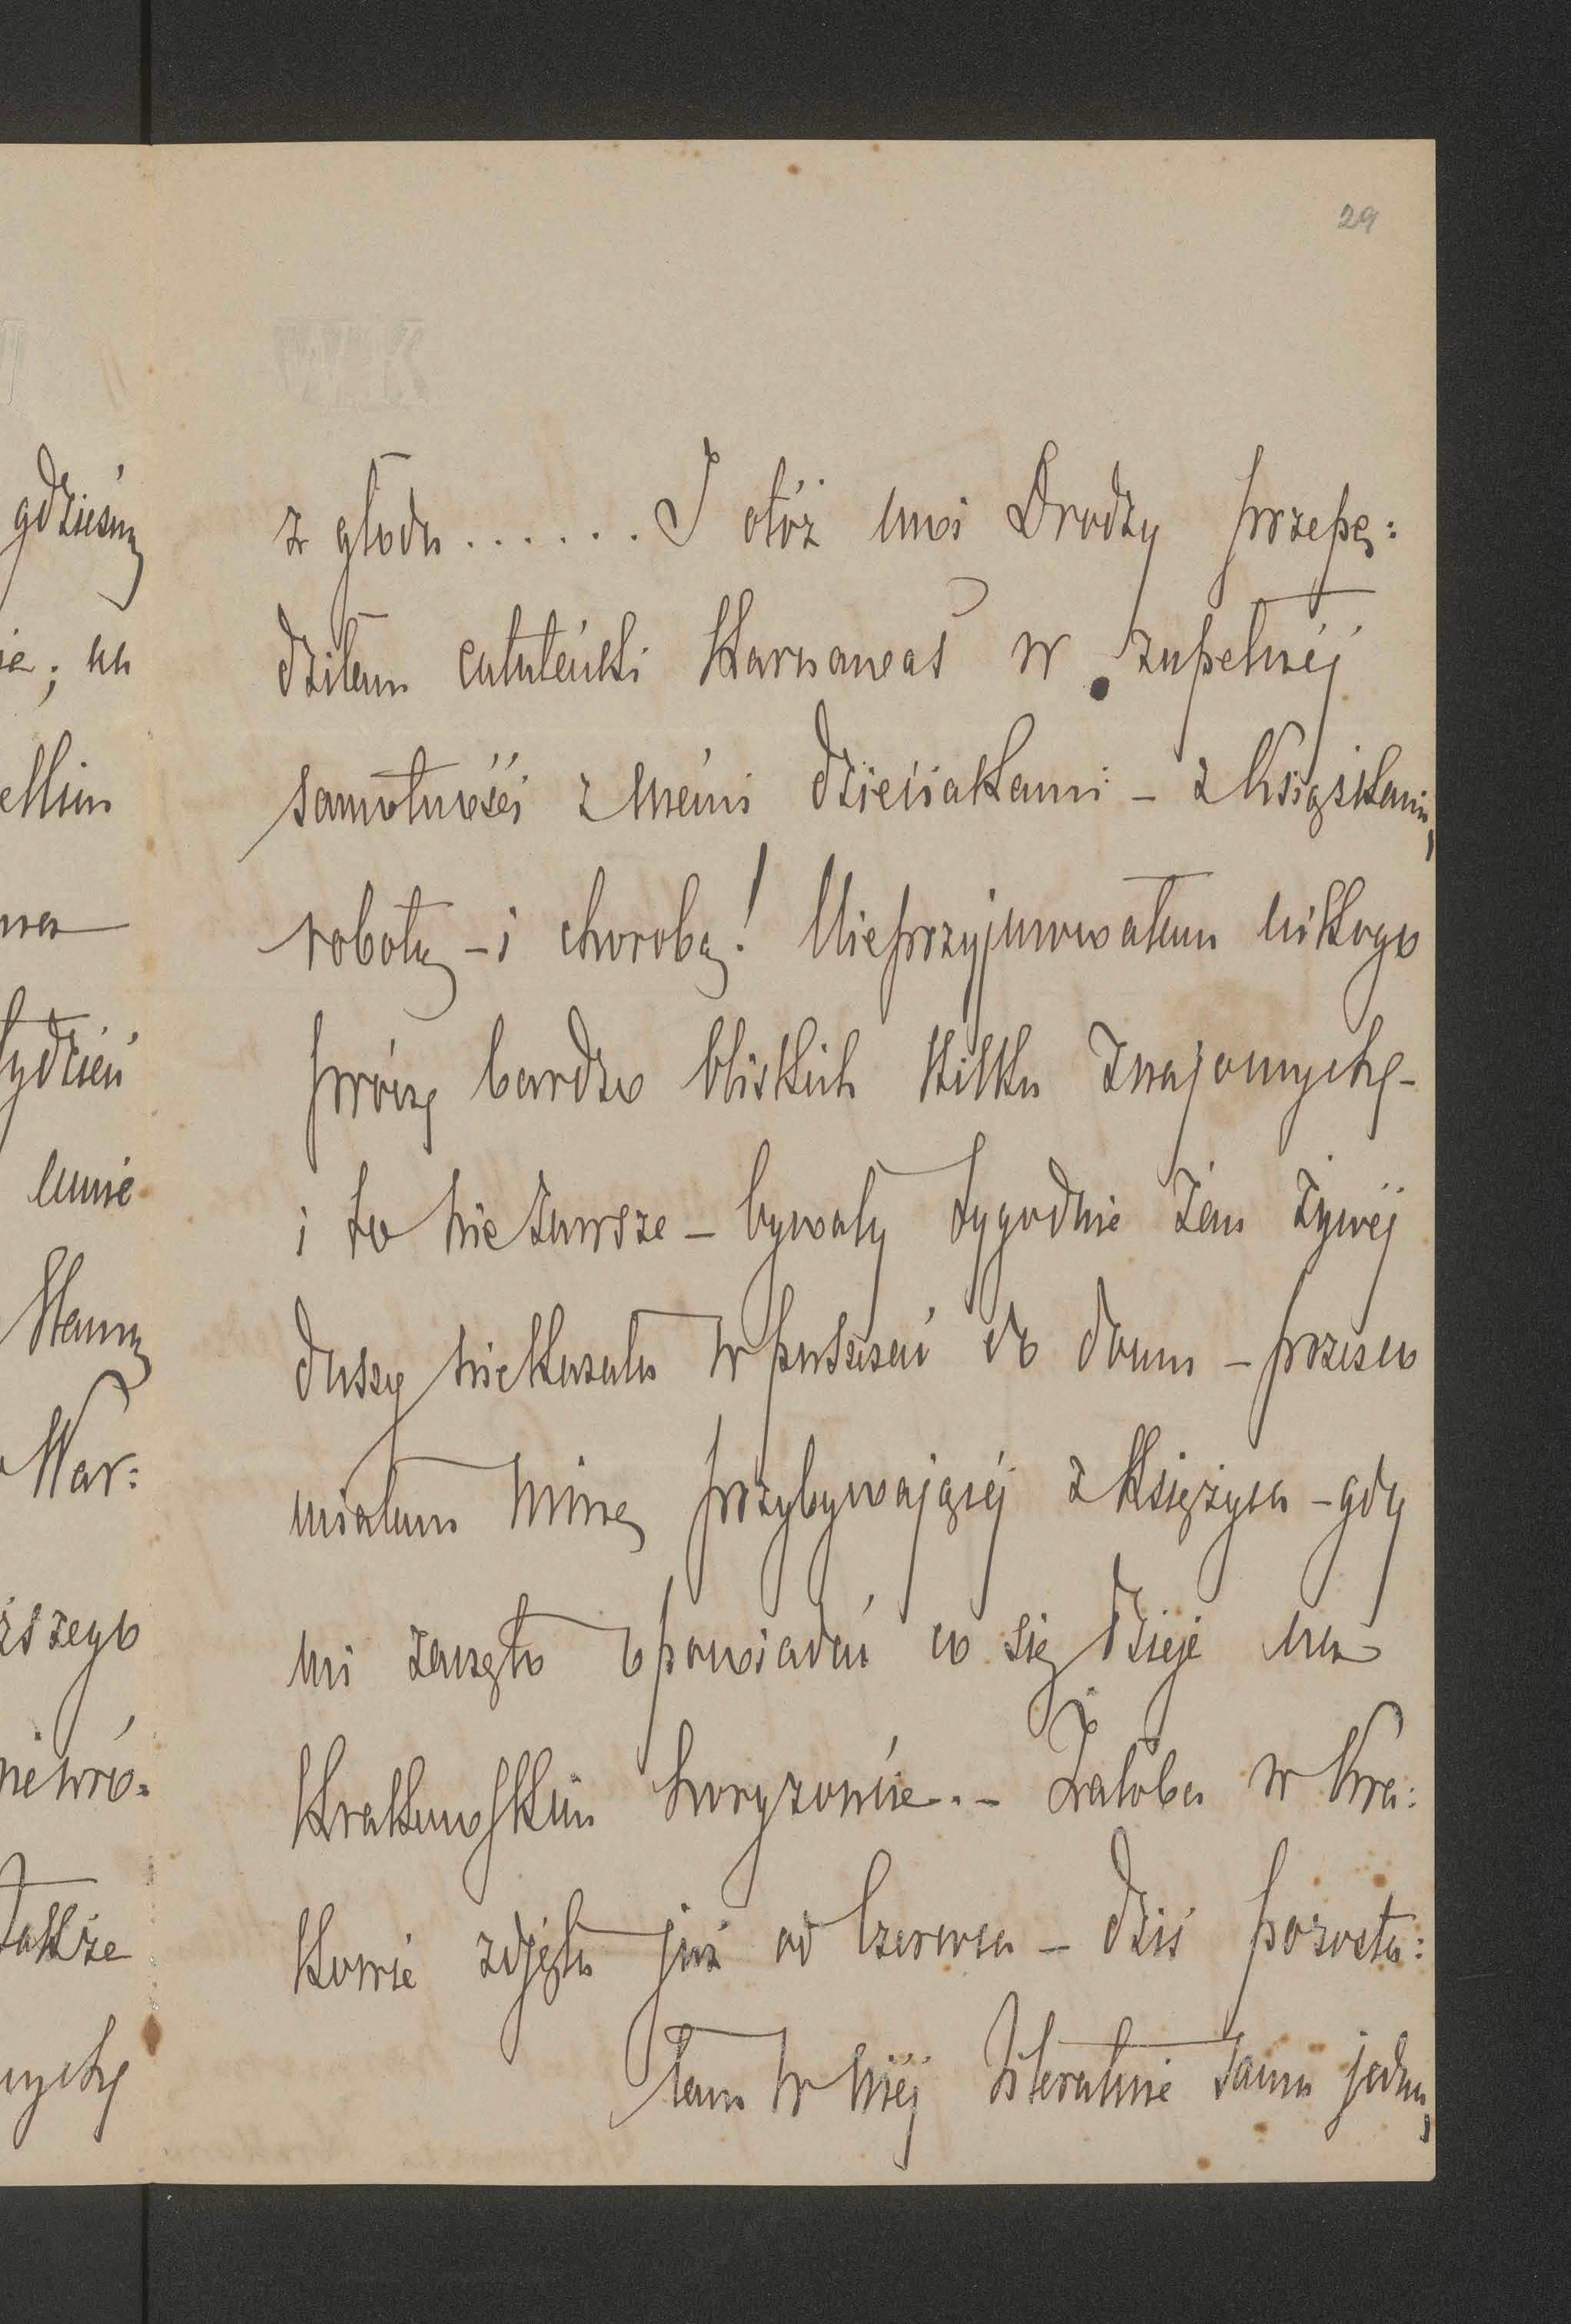 29
z głodu....... I otóż moi Drodzy przepę:
dziłam calutéńki Karnawał w zupełnéj
samotności z memi dzieciakami - z książkami,
robotą - i chorobą! Nieprzyjmowałam nikogo
prócz bardzo bliskich kilku znajomych -
i to nie zawsze - bywały tygodnie żem żywéj
duszy niekazała wpuszczać do domu - przeco
miałam minę przybywającéj z księżyca - gdy
mi zaczęto opowiadać co się dzieje na
Krakowskim horyzoncie.. - Żałoba w Kra:
kowie zdjęta już od Czerwca - dziś pozosta:
łam w niéj literalnie sama jedna,
gdzieśmy
na
tydzień
mnie
Mamy
War:
także